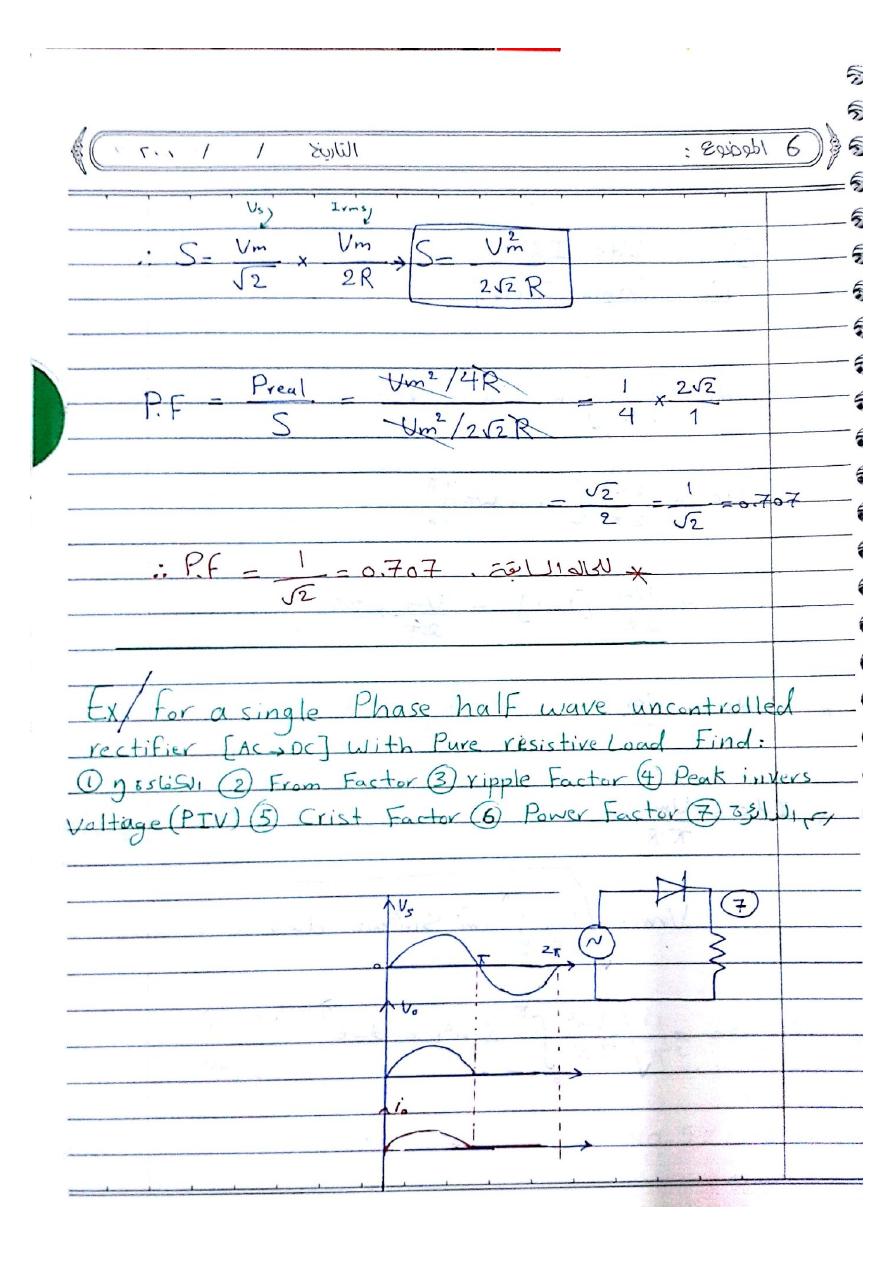 6 الموضوع : التاريخ / / ٢٠٠
Vs Irms
∴ S = Vm/√2 × Vm/2R → S = Vm²/2√2 R
P.F = Preal/S = Vm²/4R / Vm²/2√2 R = 1/4 × 2√2/1
= √2/2 = 1/√2 = 0.707
∴ P.F = 1/√2 = 0.707 . للحاله السابقة *
Ex/ For a single Phase half wave uncontrolled
rectifier [AC→DC] With Pure resistive Load Find:
① η الكفاءة ② From Factor ③ ripple Factor ④ Peak invers
Voltage (PIV) ⑤ Crist Factor ⑥ Power Factor ⑦ رسم الدائرة
Vs ⑦
0 π 2π
Vo
io